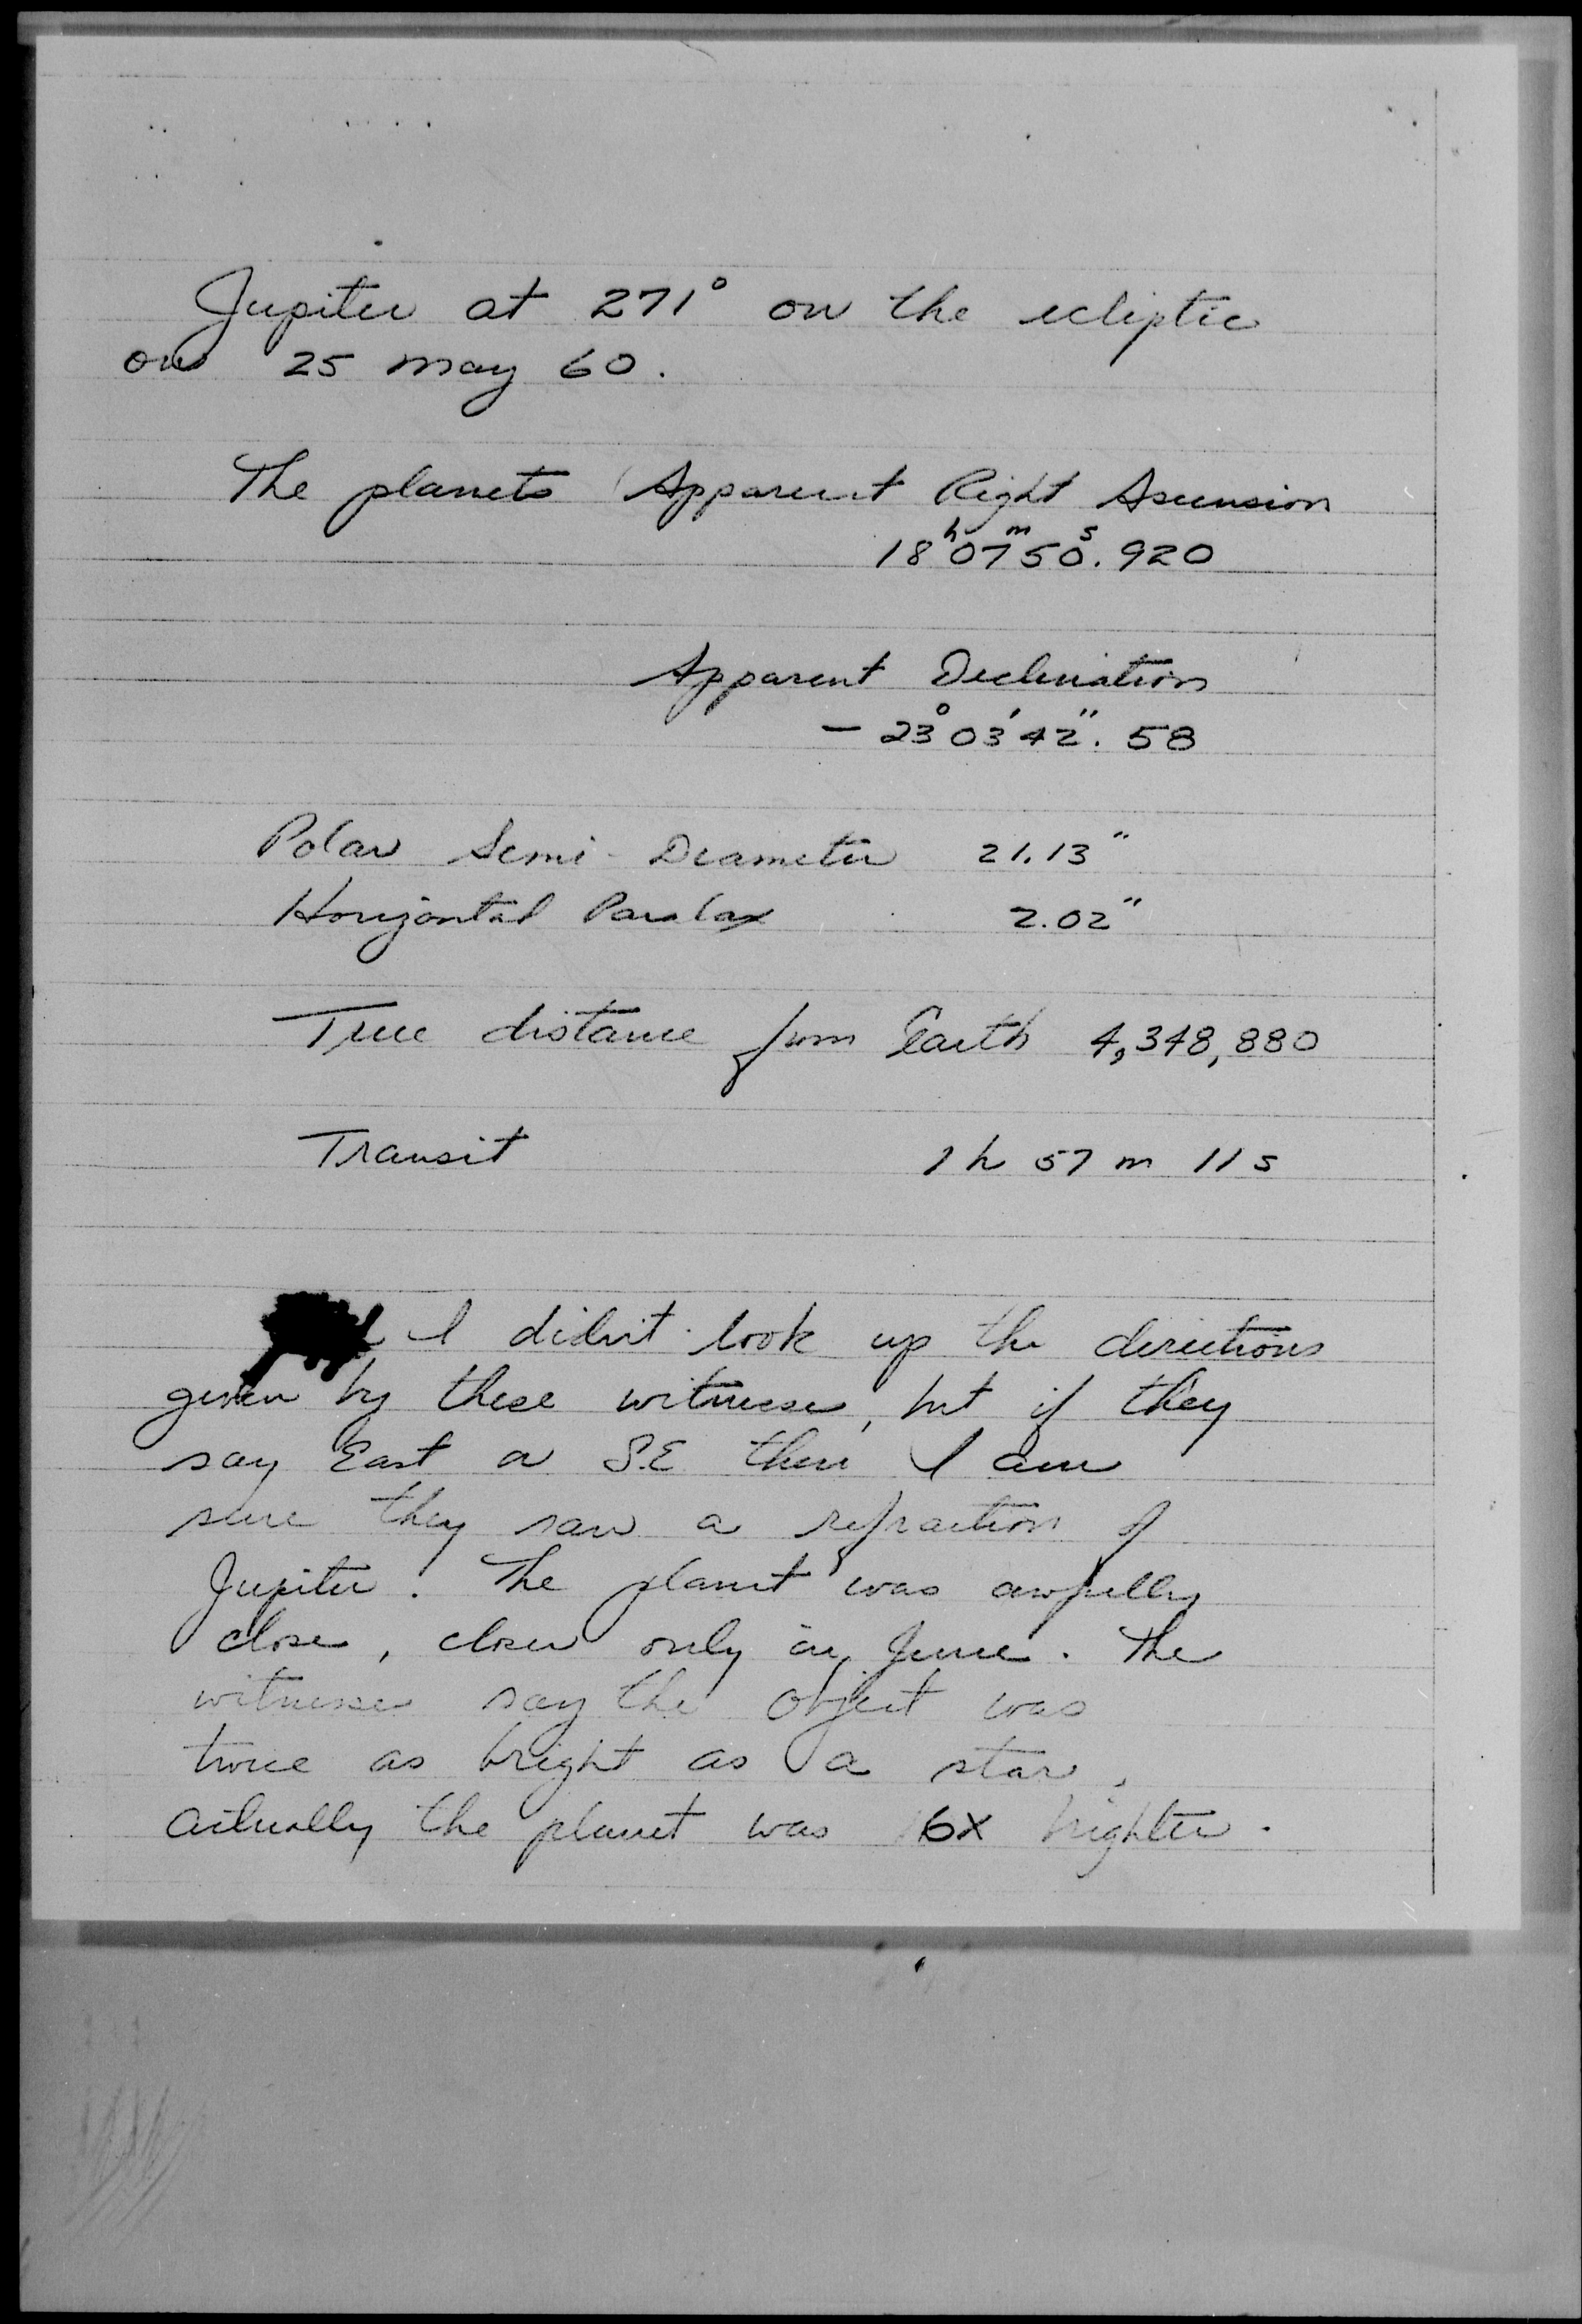 Jupiter at 271° on the ecliptic
on 25 May 60.
The planets Apparent Right Ascension
18h 07m 50s.920
Apparent Declination
- 23° 03' 42".58
Polar Semi-Diameter 21.13"
Horizontal Paralax 2.02"
True distance from Earth 4,348,880
Transit 1h 57m 11s
I didn't look up the directions
given by these witnesses, but if they
say East or S.E then I am
sure they saw a refraction of
Jupiter. The planet was awfully
close, closer only in June. The
witnesses say the object was
twice as bright as a star,
actually the planet was 6X brighter.